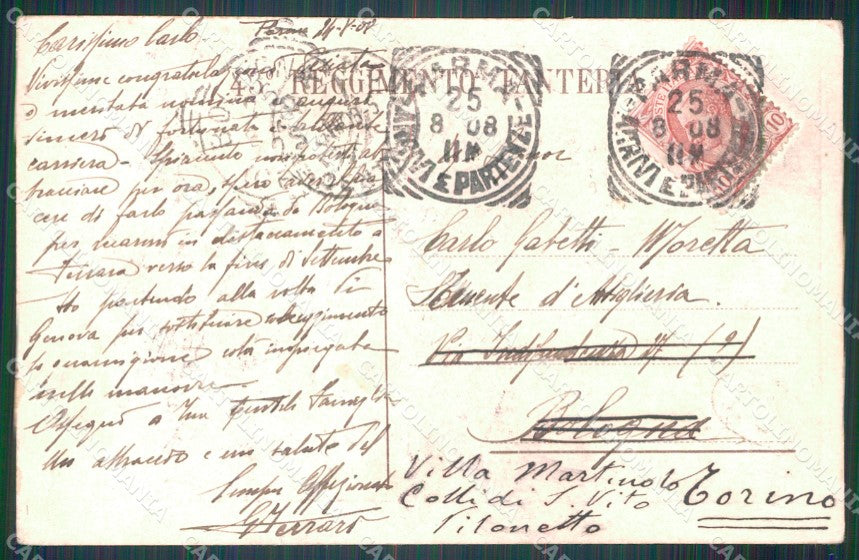 Carissimo Carlo
Parma 24-8-08
Vivissime congratulazioni
e meritata nomina e auguri
sinceri di fortunata e brillante
carriera - Spiacente non poterti
abbracciare per ora, spero
di farlo passando da Bologna
per recarmi in distaccamento a
Ferrara verso la fine di Settembre
Sto partendo alla volta di
Genova per sostituire
guarnigione colà impiegata
nelle manovre.
Ossequi a Tua Gentile famiglia
Un abbraccio e un saluto del
Sempre Affezionato
G Ferraro
45° REGGIMENTO FANTERIA
PARMA
25
8 08
11M
ARRIVI E PARTENZE
PARMA
25
8 08
11M
ARRIVI E PARTENZE
10
Carlo Gabetti - Moretta
Tenente d'Artiglieria.
Via Indipendenza 17 (2)
Bologna
Villa Martinolo
Colli di S. Vito
Pilonetto
Torino
CARTOLINOMANIA